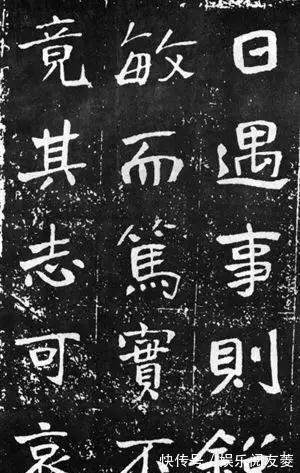 日遇事則
敏而篤實不
竟其志可哀
快传号/娱乐阅友菱